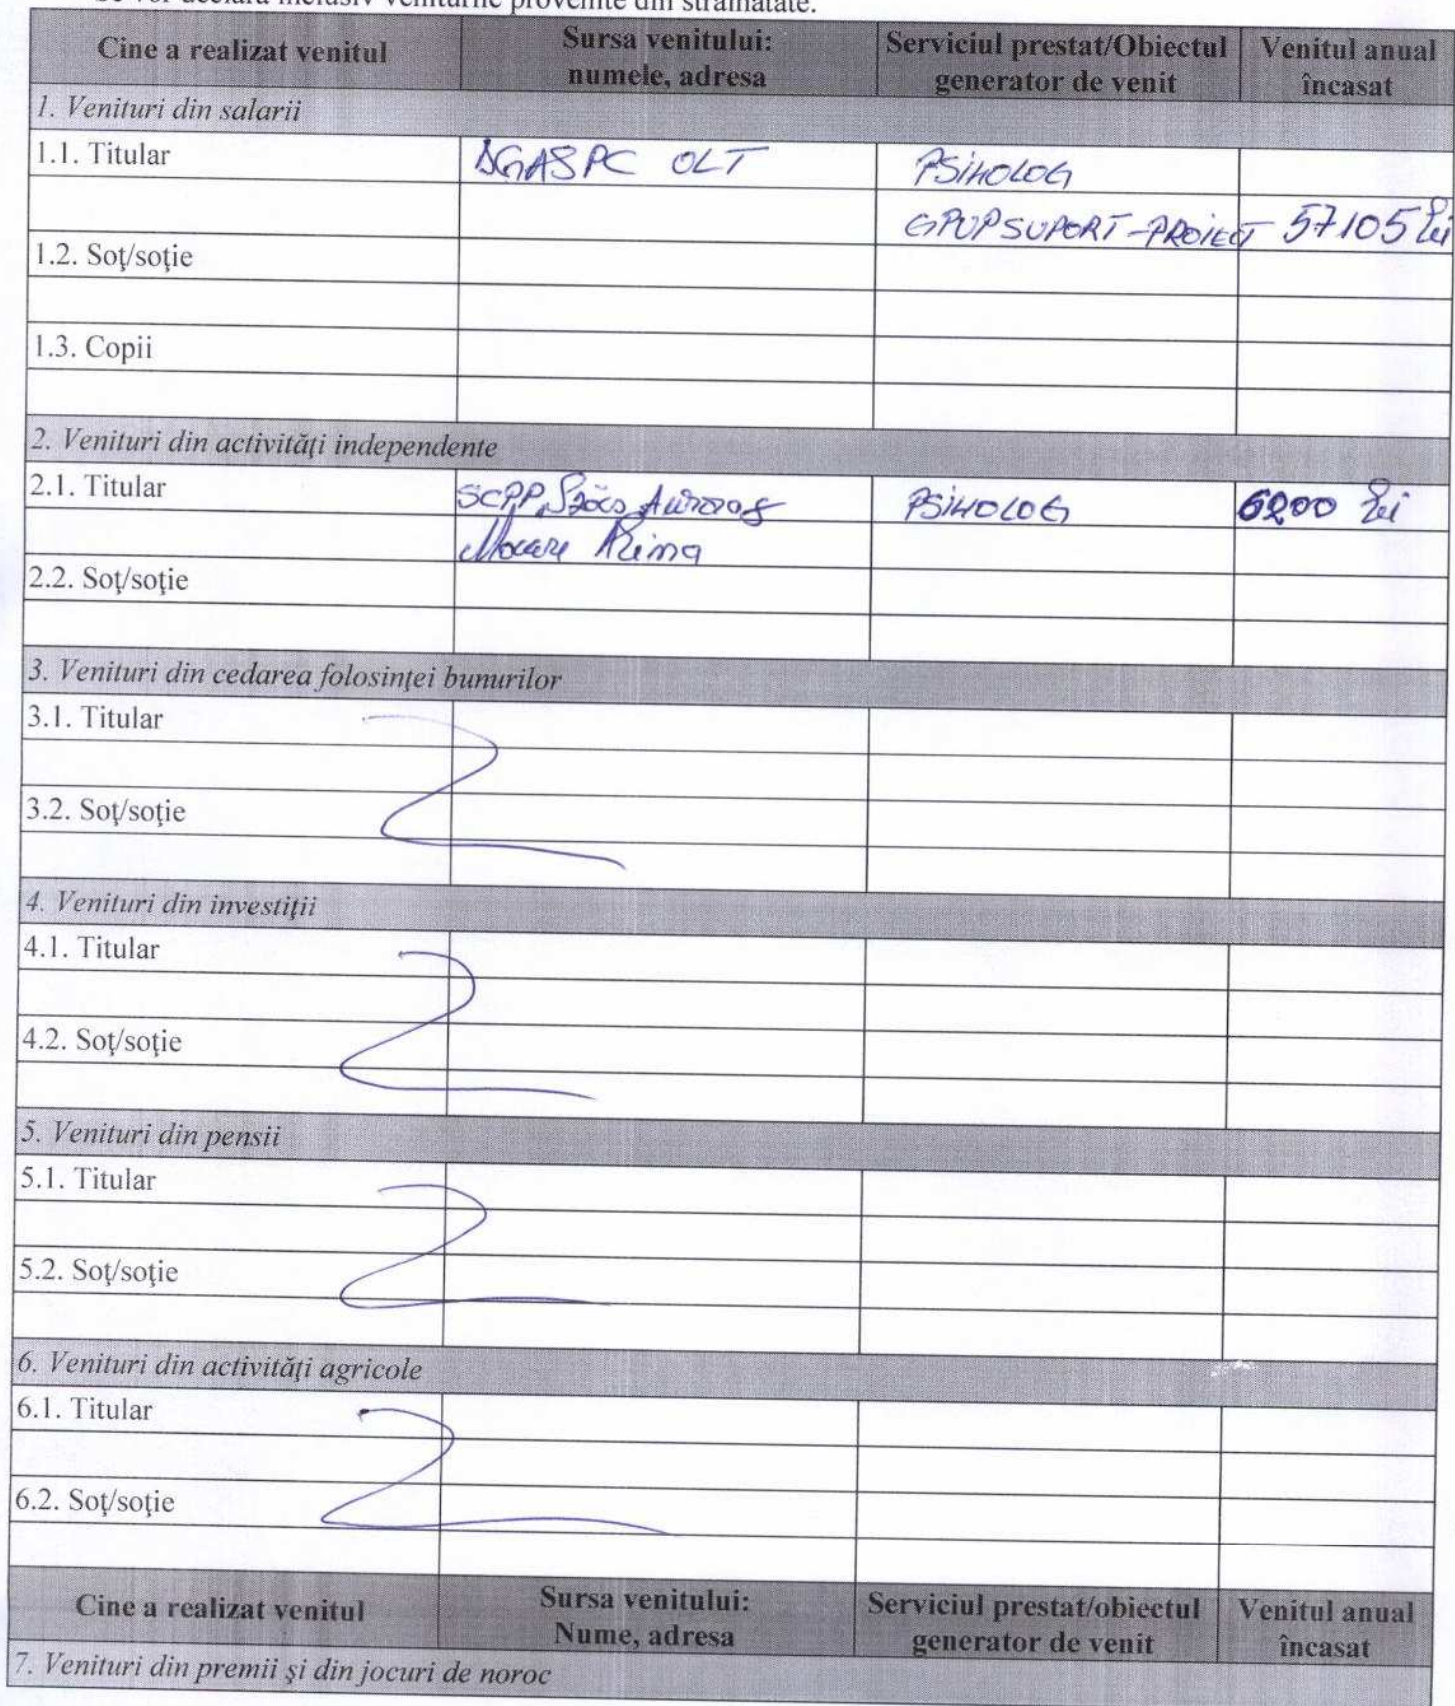 Se vor declara inclusiv veniturile provenite din străinătate.
Cine a realizat venitul
Sursa venitului:
numele, adresa
Serviciul prestat/Obiectul
generator de venit
Venitul anual
încasat
1. Venituri din salarii
1.1. Titular
DGASPC OLT
PSIHOLOG
GPUP SUPORT-PROIECT 57105 lei
1.2. Soţ/soţie
1.3. Copii
2. Venituri din activităţi independente
2.1. Titular
SCPP
PSIHOLOG
6200 lei
2.2. Soţ/soţie
3. Venituri din cedarea folosinţei bunurilor
3.1. Titular
3.2. Soţ/soţie
4. Venituri din investiţii
4.1. Titular
4.2. Soţ/soţie
5. Venituri din pensii
5.1. Titular
5.2. Soţ/soţie
6. Venituri din activităţi agricole
6.1. Titular
6.2. Soţ/soţie
Cine a realizat venitul
Sursa venitului:
Nume, adresa
Serviciul prestat/obiectul
generator de venit
Venitul anual
încasat
7. Venituri din premii şi din jocuri de noroc